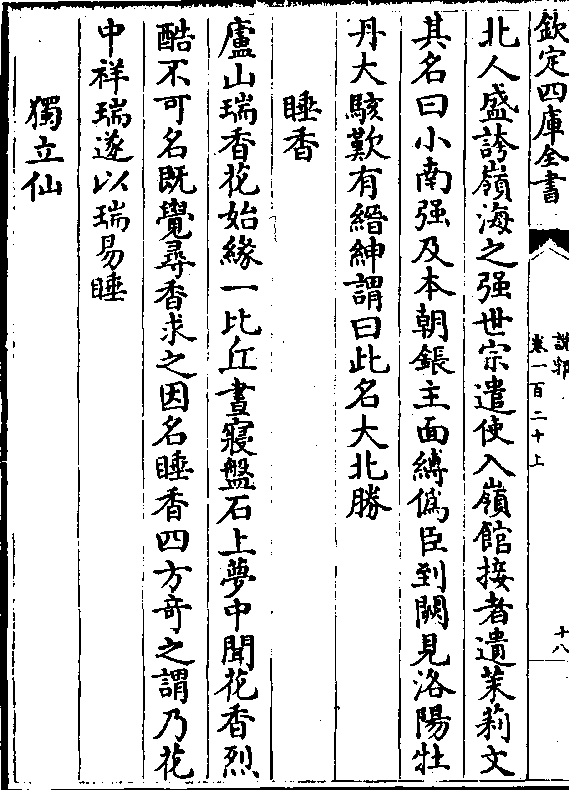 欽定四庫全書
說郛
卷一百二十上
十八
北人盛誇嶺海之强世宗遣使入嶺館接者遺茉莉文
其名曰小南强及本朝鋹主面縛僞臣到闕見洛陽牡
丹大駭歎有縉紳謂曰此名大北勝
睡香
廬山瑞香花始緣一比丘晝寢盤石上夢中聞花香烈
酷不可名旣覺尋香求之因名睡香四方竒之謂乃花
中祥瑞遂以瑞易睡
獨立仙